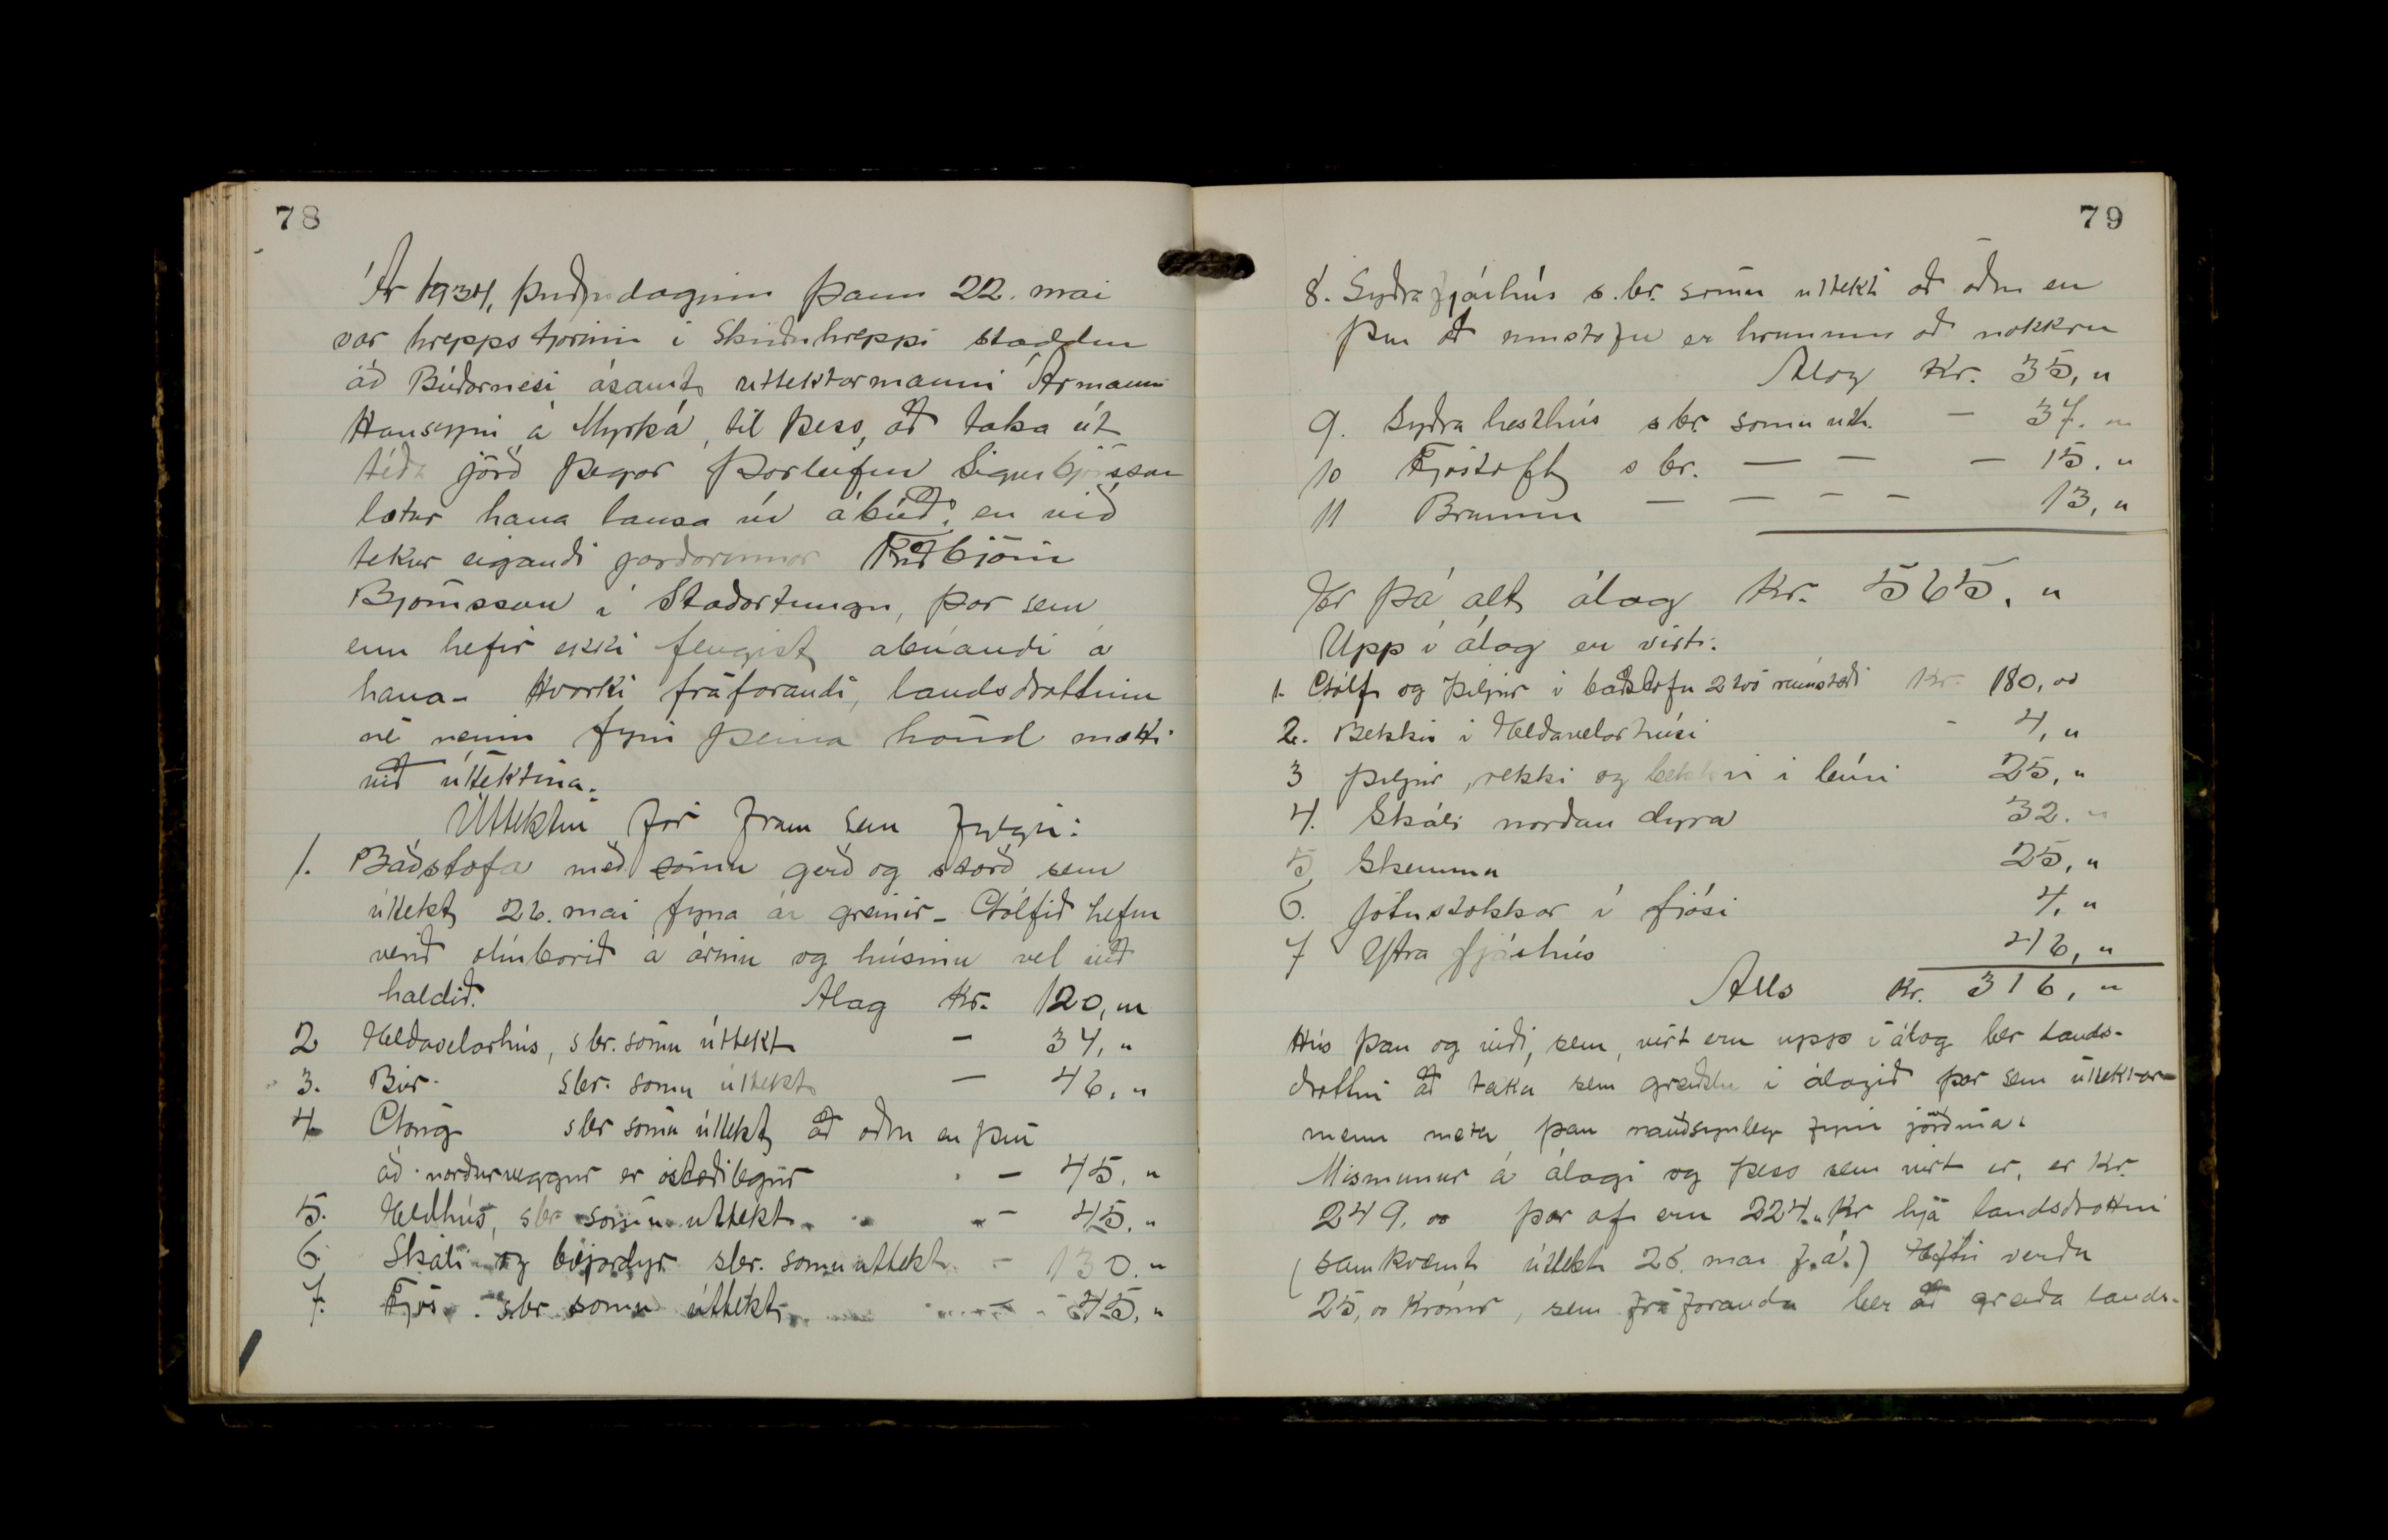 78
Ár 1934, þriðjudaginn þann 22. mai
var hreppstjórinn í Skriðuhreppi staddur
að Búðarnesi ásamt úttektarmanni Ármanni
Hanssyni á Myrká, til þess, að taka út
téða jörð þegar Þorleifur Sigurbjörnsson
lætur hana lausa úr ábúð, en við
tekur eigandi jarðarinnar Friðbjörn
Björnsson í Staðartungu, þar sem
enn hefir ekki fengist ábúandi á
hana - Hvorki fráfarandi, landsdrottinn
né neinn fyrir þeirra hönd mætti
við úttektina.
Úttektin fór fram sem fylgir:
1. Baðstofa með sömu gerð og stærð sem
úttekt 26. mai fyrra ár greinir - Gólfið hefur
verið olíuborið á árinu og húsinu vel við
haldið. Álag Kr. 120,00
2 Eldavelarhús, sbr. sömu úttekt - 34, "
3. Búr sbr. sömu úttekt - 46, "
4 Göng sbr sömu úttekt að öðru en því
að norðurveggur er óstæðilegur - 45, "
5. Eldhús, sbr sömu úttekt - 45, "
6. Skáli og bæjardyr sbr. sömu úttekt - 130. "
7. Fjós sbr sömu úttekt - 45, "
79
8. Syðra fjárhús s.br. sömu úttekt að öðru en
því að innstafn er hruninn að nokkru
Álag Kr. 35, "
9. Syðra hesthús sbr. sömu útt. - 37. "
10 Fjóstóft sbr. — — - 15. "
11 Brunnur — — — — 13, "
Er þá alt álag Kr. 565, "
Upp í álag er virt:
1. Gólf og þiljur í baðstofu 2 tvö rúmstæði Kr. 180,00
2. Bekkir í Eldavelarhúsi - 4, "
3 Þiljur, rekki og bekkir í búri 25, "
4. Skáli norðan dyra 32. "
5. Skemma 25, "
6. Jötustokkar í fjósi 4, "
7 Ytra fjárhús 46, "
Alls Kr. 316, "
Hús þau og viði, sem virt eru upp í álag ber lands-
drottni að taka sem greiðslu í álagið þar sem úttektar-
menn meta þau nauðsynleg fyrir jörðina.
Mismunur á álagi og þess sem virt er, er Kr.
249.00 þar af eru 224." Kr hjá landsdrottni
(samkvæmt úttekt 26. mai f.á.) Eftir verða
25,00 Krónur, sem fráfaranda ber að greiða lands-